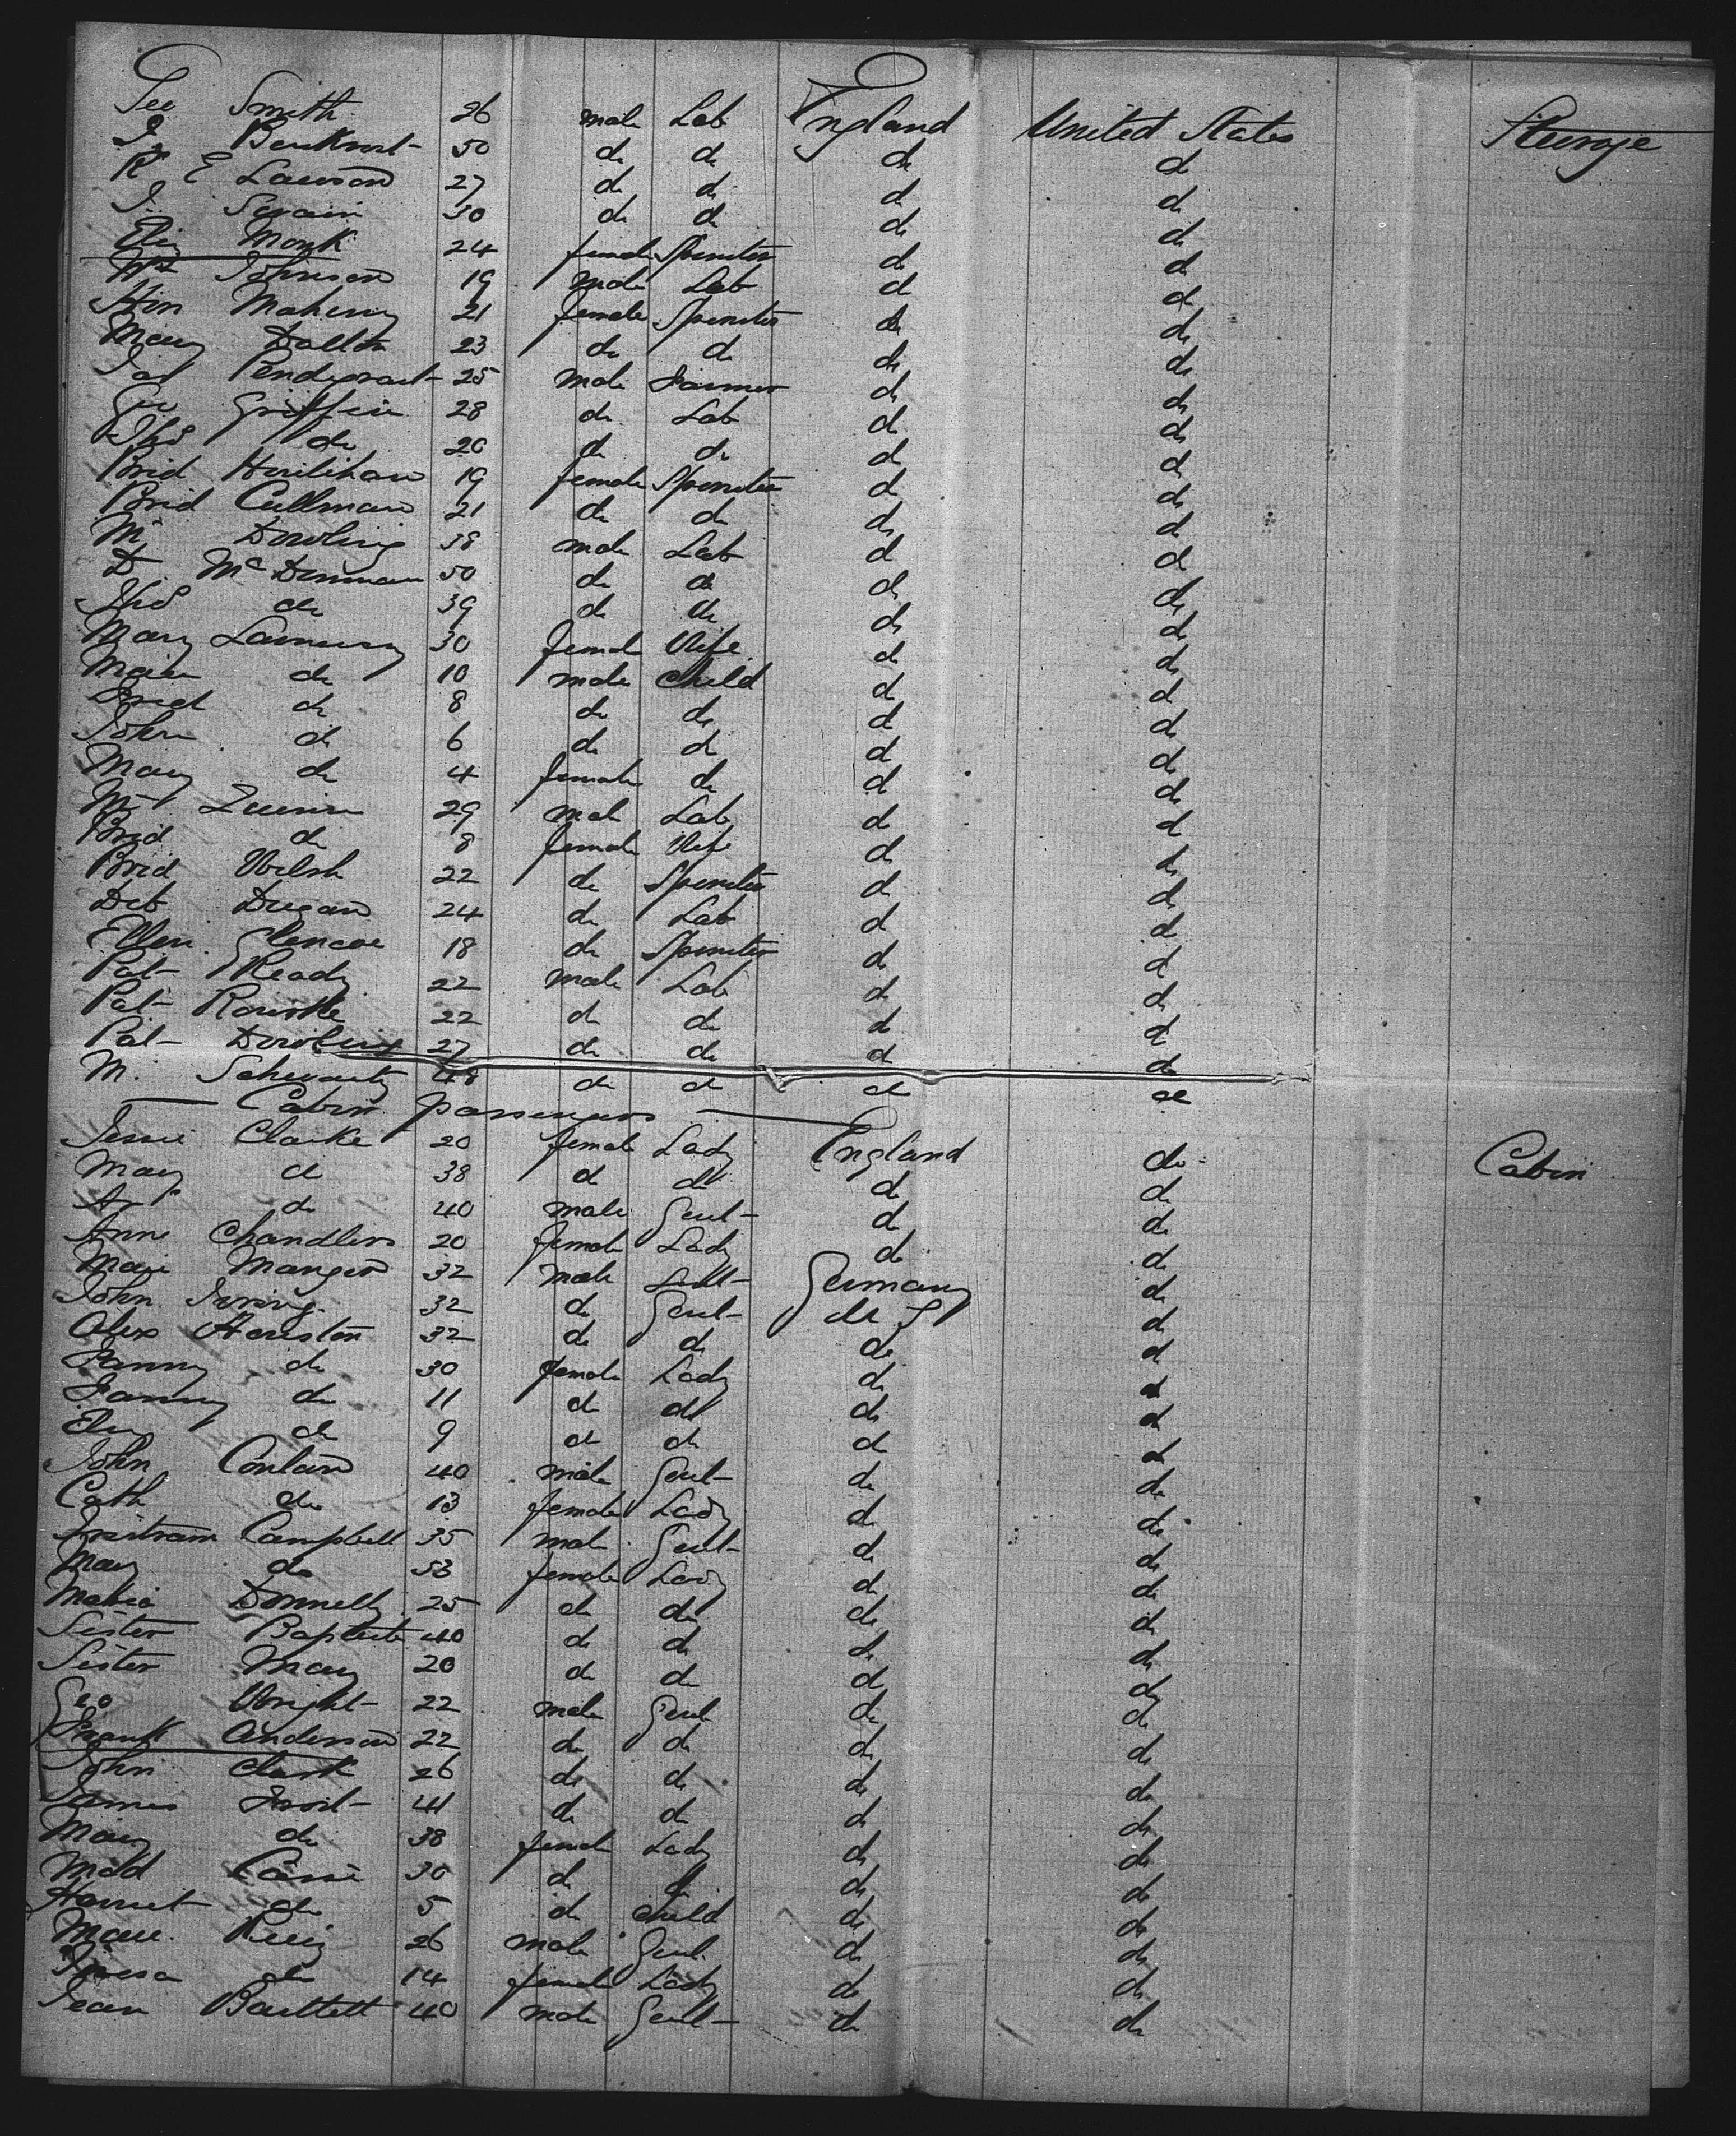 Smith 26 male Lab England United States Steerage
50 do do do do
R E Lawson 27 do do do do
J. Swain 30 do do do do
Eliz Monk 24 female Spinster do do
Wm Johnson 19 male Lab do do
21 female Spinster do do
Mary Dalton 23 do do do do
Pendegrast 25 male Farmer do do
Geo Griffin 28 do Lab do do
Thos do 20 do do do do
Brid Hurlihan 19 female Spinster do do
Brid Cullman 21 do do do do
M Dowling 38 male Lab do do
D McDonnan 50 do do do do
Thos do 39 do do do do
Mary 30 female Wife do do
do 10 male child do do
do 8 do do do do
John do 6 do do do do
Mary do 4 female do do do
M 29 male Lab do do
Brid do 8 female Wife do do
Brid Welsh 22 do Spinster do do
Deb Dugan 24 do Lab do do
Ellen Glencoe 18 do Spinster do do
Pat Ready 22 male Lab do do
Pat Rourke 22 do do do do
Pat Dowling 27 do do do do
M. Schwartz 48 do do do do
Cabin passengers
Jessie Clarke 20 female Lady England do Cabin
Mary do 38 do do do do
do 40 male Gent do do
Anne Chandlers 20 female Lady do do
Manger 32 male Germany do
John Irving 32 do Gent do do
Alex Houston 32 do do do do
Fanny do 30 female Lady do do
Fanny do 11 do do do do
do 9 do do do do
John Conlan 40 male Gent do do
Cath do 13 female Lady do do
Campbell 35 male Gent do do
Mary do 53 female Lady do do
Maria Donnelly 25 do do do do
Sister Baptiste 40 do do do do
Sister Mary 20 do do do do
Geo Wright 22 male Gent do do
Frank Anderson 22 do do do do
John Clark 26 do do do do
James Frost 41 do do do do
Mary do 38 female Lady do do
30 do do do do
Harriet do 5 do child do do
26 male Gent do do
do 14 female Lady do do
Jean Bartlett 40 male Gent do do